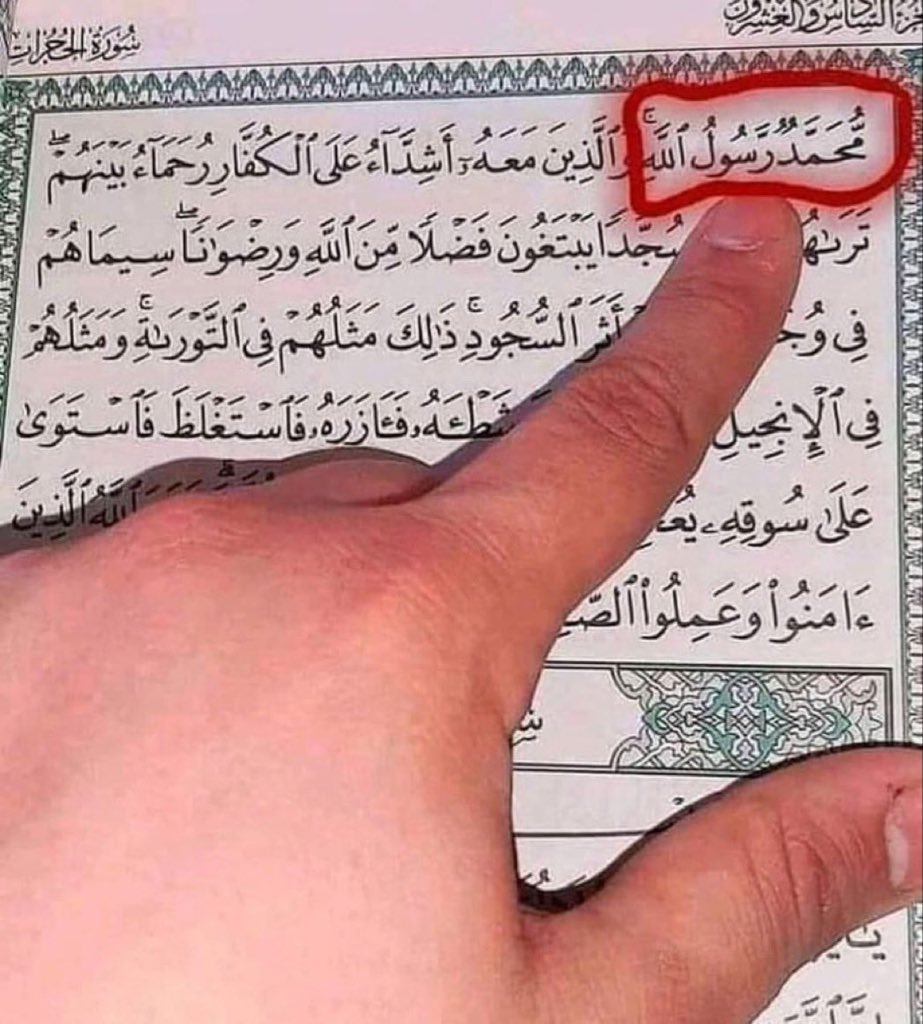 سُورَةُ الحُجُرَاتِ الجُزْءُ السَّادِسُ وَالعِشْرُونَ
مُّحَمَّدٌ رَّسُولُ ٱللَّهِۚ وَٱلَّذِينَ مَعَهُۥٓ أَشِدَّآءُ عَلَى ٱلْكُفَّارِ رُحَمَآءُ بَيْنَهُمْۖ
تَرَىٰهُ سُجَّدًا يَبْتَغُونَ فَضْلًا مِّنَ ٱللَّهِ وَرِضْوَٰنًاۖ سِيمَاهُمْ
فِى أَثَرِ ٱلسُّجُودِۚ ذَٰلِكَ مَثَلُهُمْ فِى ٱلتَّوْرَىٰةِۚ وَمَثَلُهُمْ
فِى ٱلْإِنجِيلِ شَطْـَٔهُۥ فَـَٔازَرَهُۥ فَٱسْتَغْلَظَ فَٱسْتَوَىٰ
عَلَىٰ سُوقِهِۦ ٱللَّهُ ٱلَّذِينَ
ءَامَنُوا۟ وَعَمِلُوا۟